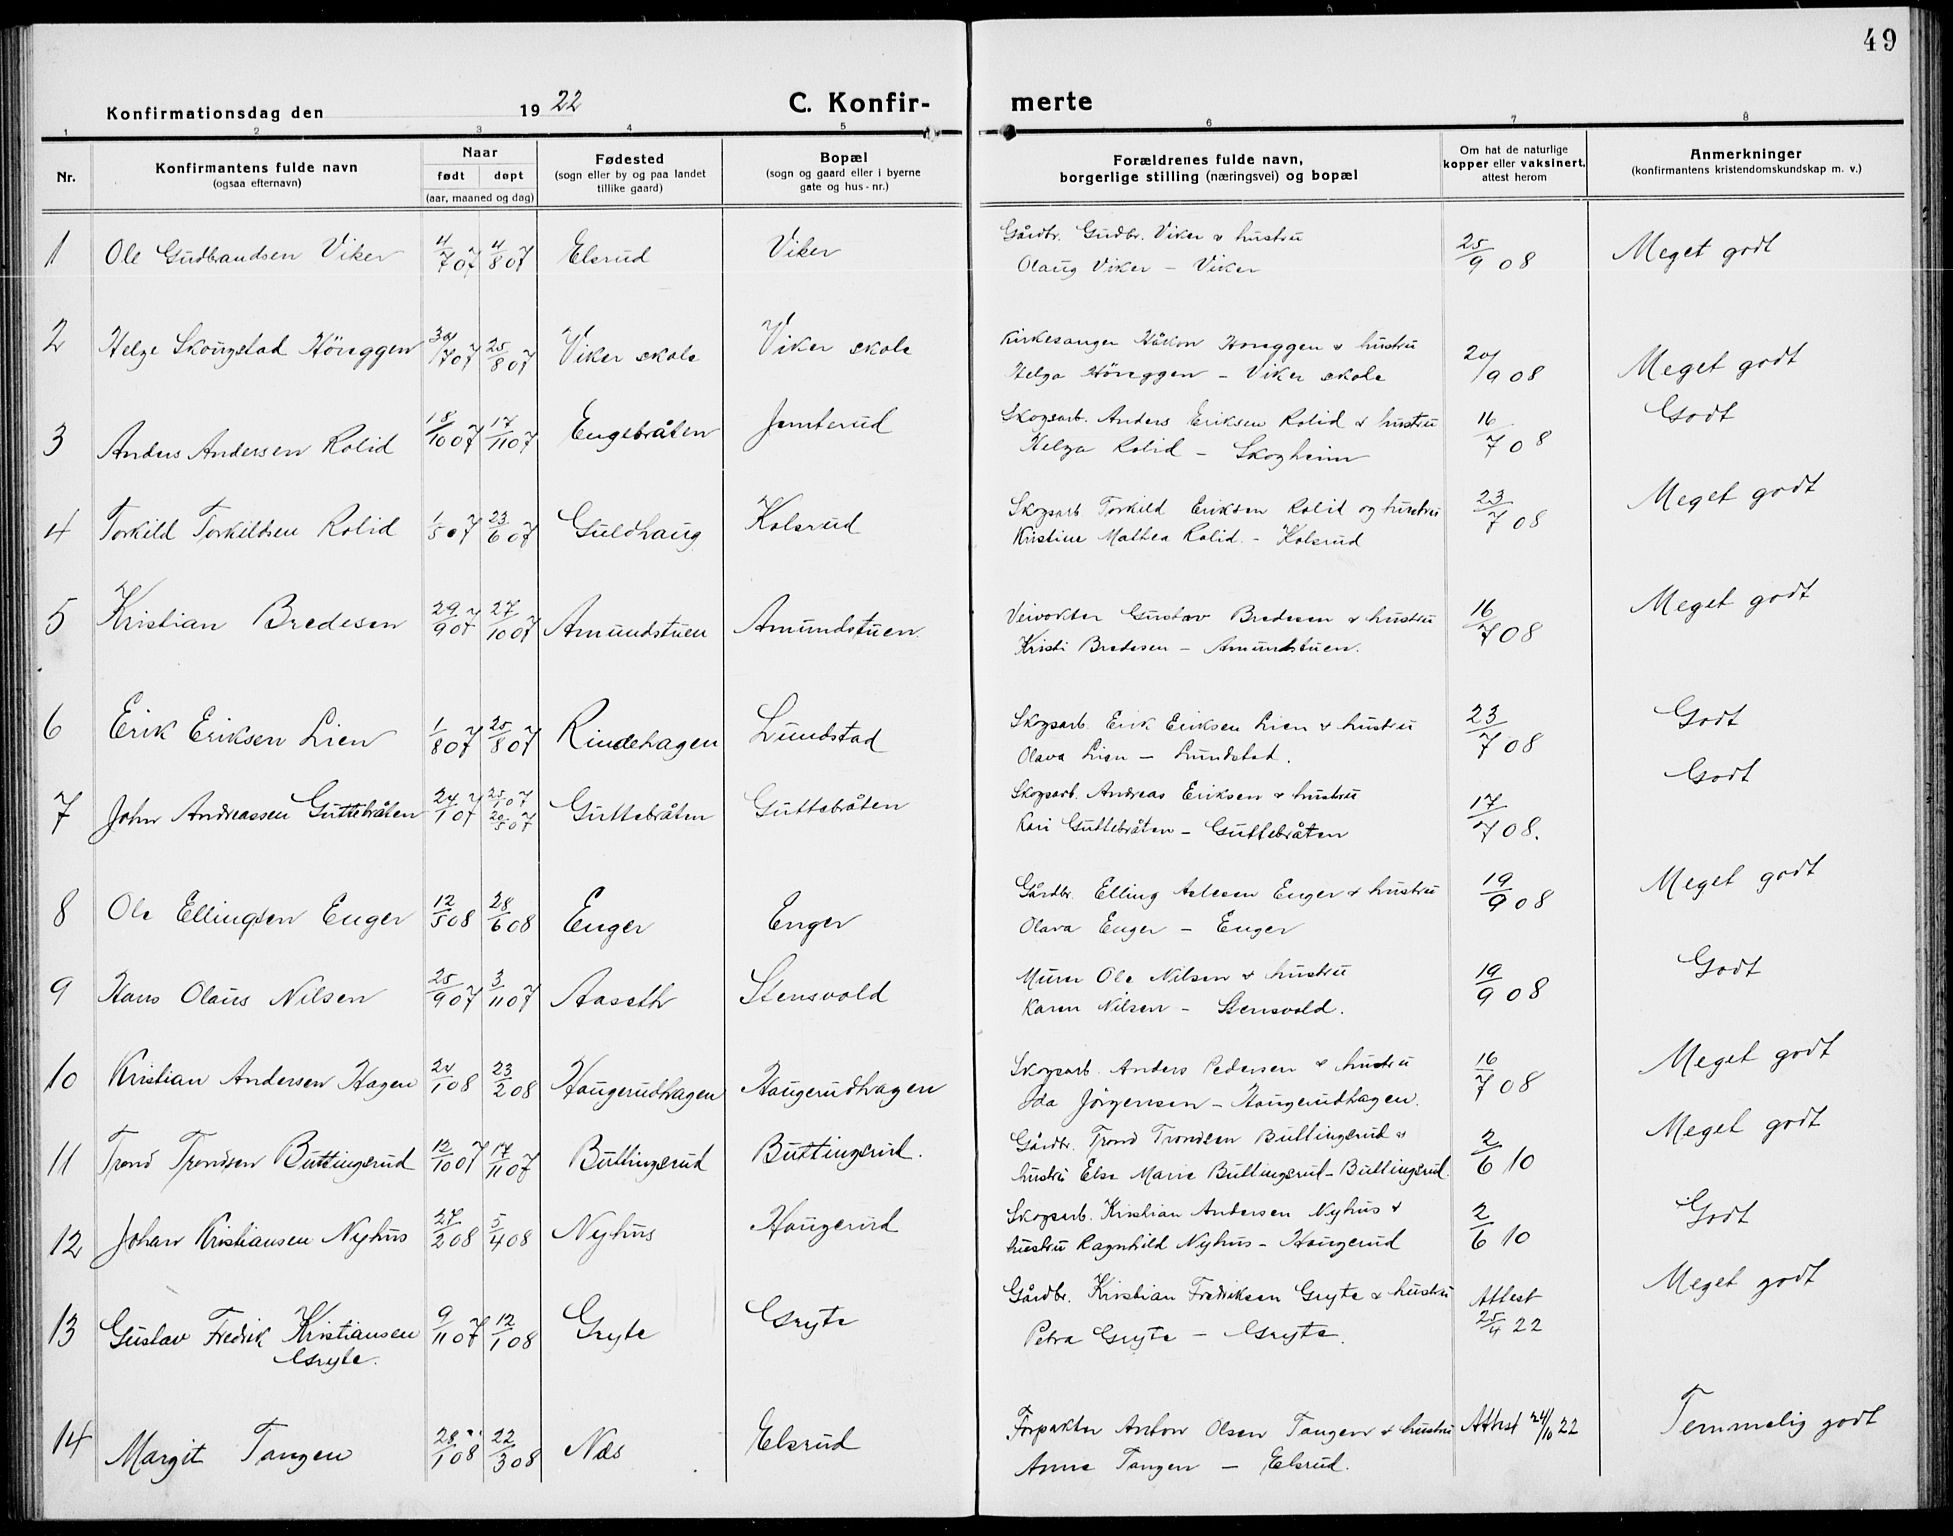 49
Konfirmationsdag den 1922 C. Konfir- merte
1 2 3 4 5 6 7 8
Nr.
Konfirmantens fulde navn
(ogsaa efternavn)
Naar
født døpt
(aar, maaned og dag)
Fødested
(sogn eller by og paa landet
tillike gaard)
Bopæl
(sogn og gaard eller i byerne
gate og hus-nr.)
Forældrenes fulde navn,
borgerlige stilling (næringsvei) og bopæl
Om hat de naturlige
kopper eller vaksinert,
attest herom
Anmerkninger
(konfirmantens kristendomskundskap m. v.)
1 Ole Gudbrandsen Viker 4/7 07 4/8 07 Elsrud Viker
Gårdbr. Gudbr. Viker & hustru
Olaug Viker – Viker
25/9 08 Meget godt
2 Helge Skougstad Höneggen /7 07 25/8 07 Viker skole Viker skole
Kirkesanger Håkon Höneggen & hustru
Helga Höneggen – Viker skole
/9 08 Meget godt
3 Anders Andersen Rolid 18/10 07 17/11 07 Engebråten Jamterud
Skogsarb. Anders Eriksen Rolid & hustru
Helga Rolid – Skogheim
16/7 08 Godt
4 Torkild Torkildsen Rolid 1/5 07 23/6 07 Guldhaug Kolsrud
Skogsarb Torkild Eriksen Rolid og hustru
Kristine Mathea Rolid. – Kolsrud
23/7 08 Meget godt
5 Kristian Bredesen 29/9 07 27/10 07 Amundstuen Amundstuen.
Veivokter Gustav Bredesen & hustru
Kristi Bredesen – Amundstuen.
16/7 08 Meget godt
6 Erik Eriksen Lien 1/8 07 25/8 07 Rindehagen Lundstad
Skogsarb. Erik Eriksen Lien & hustru
Olava Lien – Lundstad.
23/7 08 Godt
7 John Andreassen Guttebråten 24/1 07 25/1 07 20/5 07 Guttebråten Guttebråten
Skogsarb. Andreas Eriksen & hustru
Kari Guttebråten – Guttebråten
17/7 08. Godt
8 Ole Ellingsen Enger 12/5 08 28/6 08 Enger Enger
Gårdbr. Elling Aslesen Enger & hustru
Olava Enger – Enger
19/9 08 Meget godt
9 Hans Olaus Nilsen 25/9 07 3/11 07 Aaseth Stensvold
Murer Ole Nilsen & hustru
Karen Nilsen – Stensvold.
19/9 08 Godt
10 Kristian Andersen Hagen /1 08 23/2 08 Haugerudhagen Haugerudhagen
Skogsarb. Anders Pedersen & hustru
Ida Jörgensen – Haugerudhagen.
16/7 08 Meget godt
11 Trond Trondsen Buttingsrud 12/10 07 17/11 07 Buttingsrud Buttingsrud.
Gårdbr. Trond Trondsen Buttingsrud &
hustru Else Marie Buttingsrud – Buttingsrud.
2/6 10 Meget godt
12 Johan Kristiansen Nyhus 27/2 08 5/4 08 Nyhus Haugerud
Skogsarb. Kristian Andersen Nyhus &
hustru Ragnhild Nyhus – Haugerud
2/6 10 Godt
13 Gustav Fredrik Kristiansen
Gryte.
9/11 07 12/1 08 Gryte Gryte
Gårdbr. Kristian Fredriksen Gryte & hustru
Petra Gryte – Gryte.
Attest
25/4 22
Meget godt
14 Margit Tangen 28/1 08 22/3 08 Næs Elsrud
Forpakter Anton Olsen Tangen & hustru
Anne Tangen – Elsrud.
Attest 24/10 22 Temmelig godt